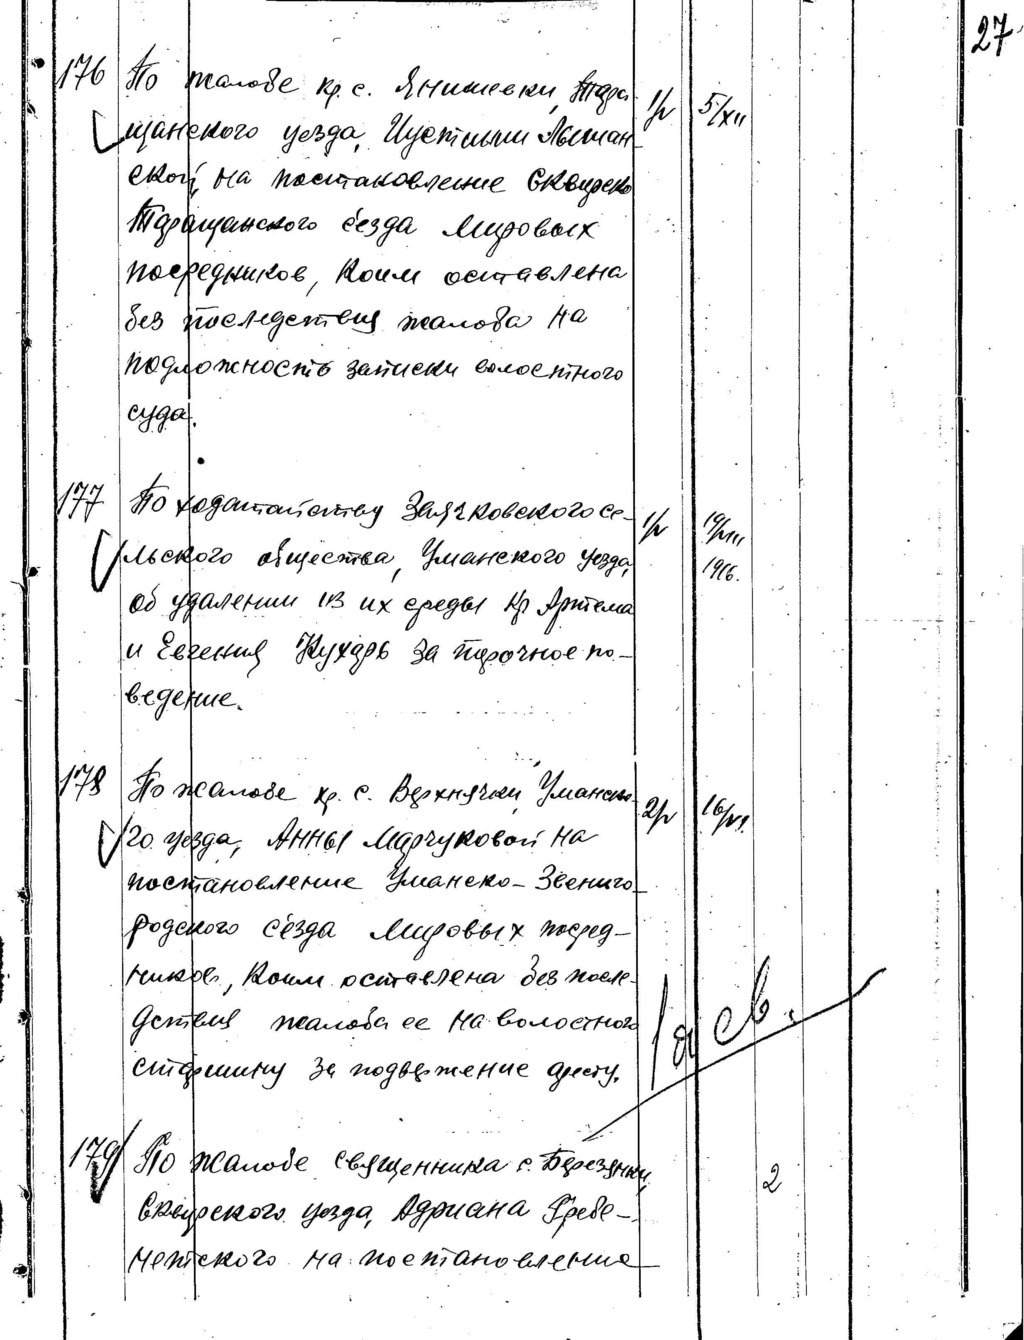 27
176 По жалобе кр. с. Янишевки, Тара-
щанского уезда, Иустины Лыман-
ской, на постановление Сквирско
Таращанского сезда Мировых
посредников, коим оставлена
без последствия жалоба на
подложность записки волостного
суда.
1/р 5/XII
177 По ходатайству Заячковского се-
льского общества, Уманского уезда,
об удалении из их среды кр Артема
и Евгения Кухарь за порочное по-
ведение.
1/р
1916.
178 По жалобе кр. с. Верхнячки, Уманско-
го уезда, Анны Марчуковой на
постановление Уманско-Звениго-
родского сезда Мировых посред-
ников, коим оставлена без после-
дствия жалоба ее на волостного
старшину за подвержение аресту.
2/р 16/VI.
1а св.
179 По жалобе священника с. Березянки,
Сквирского уезда, Адриана Гребе-
нетского на постановление
2